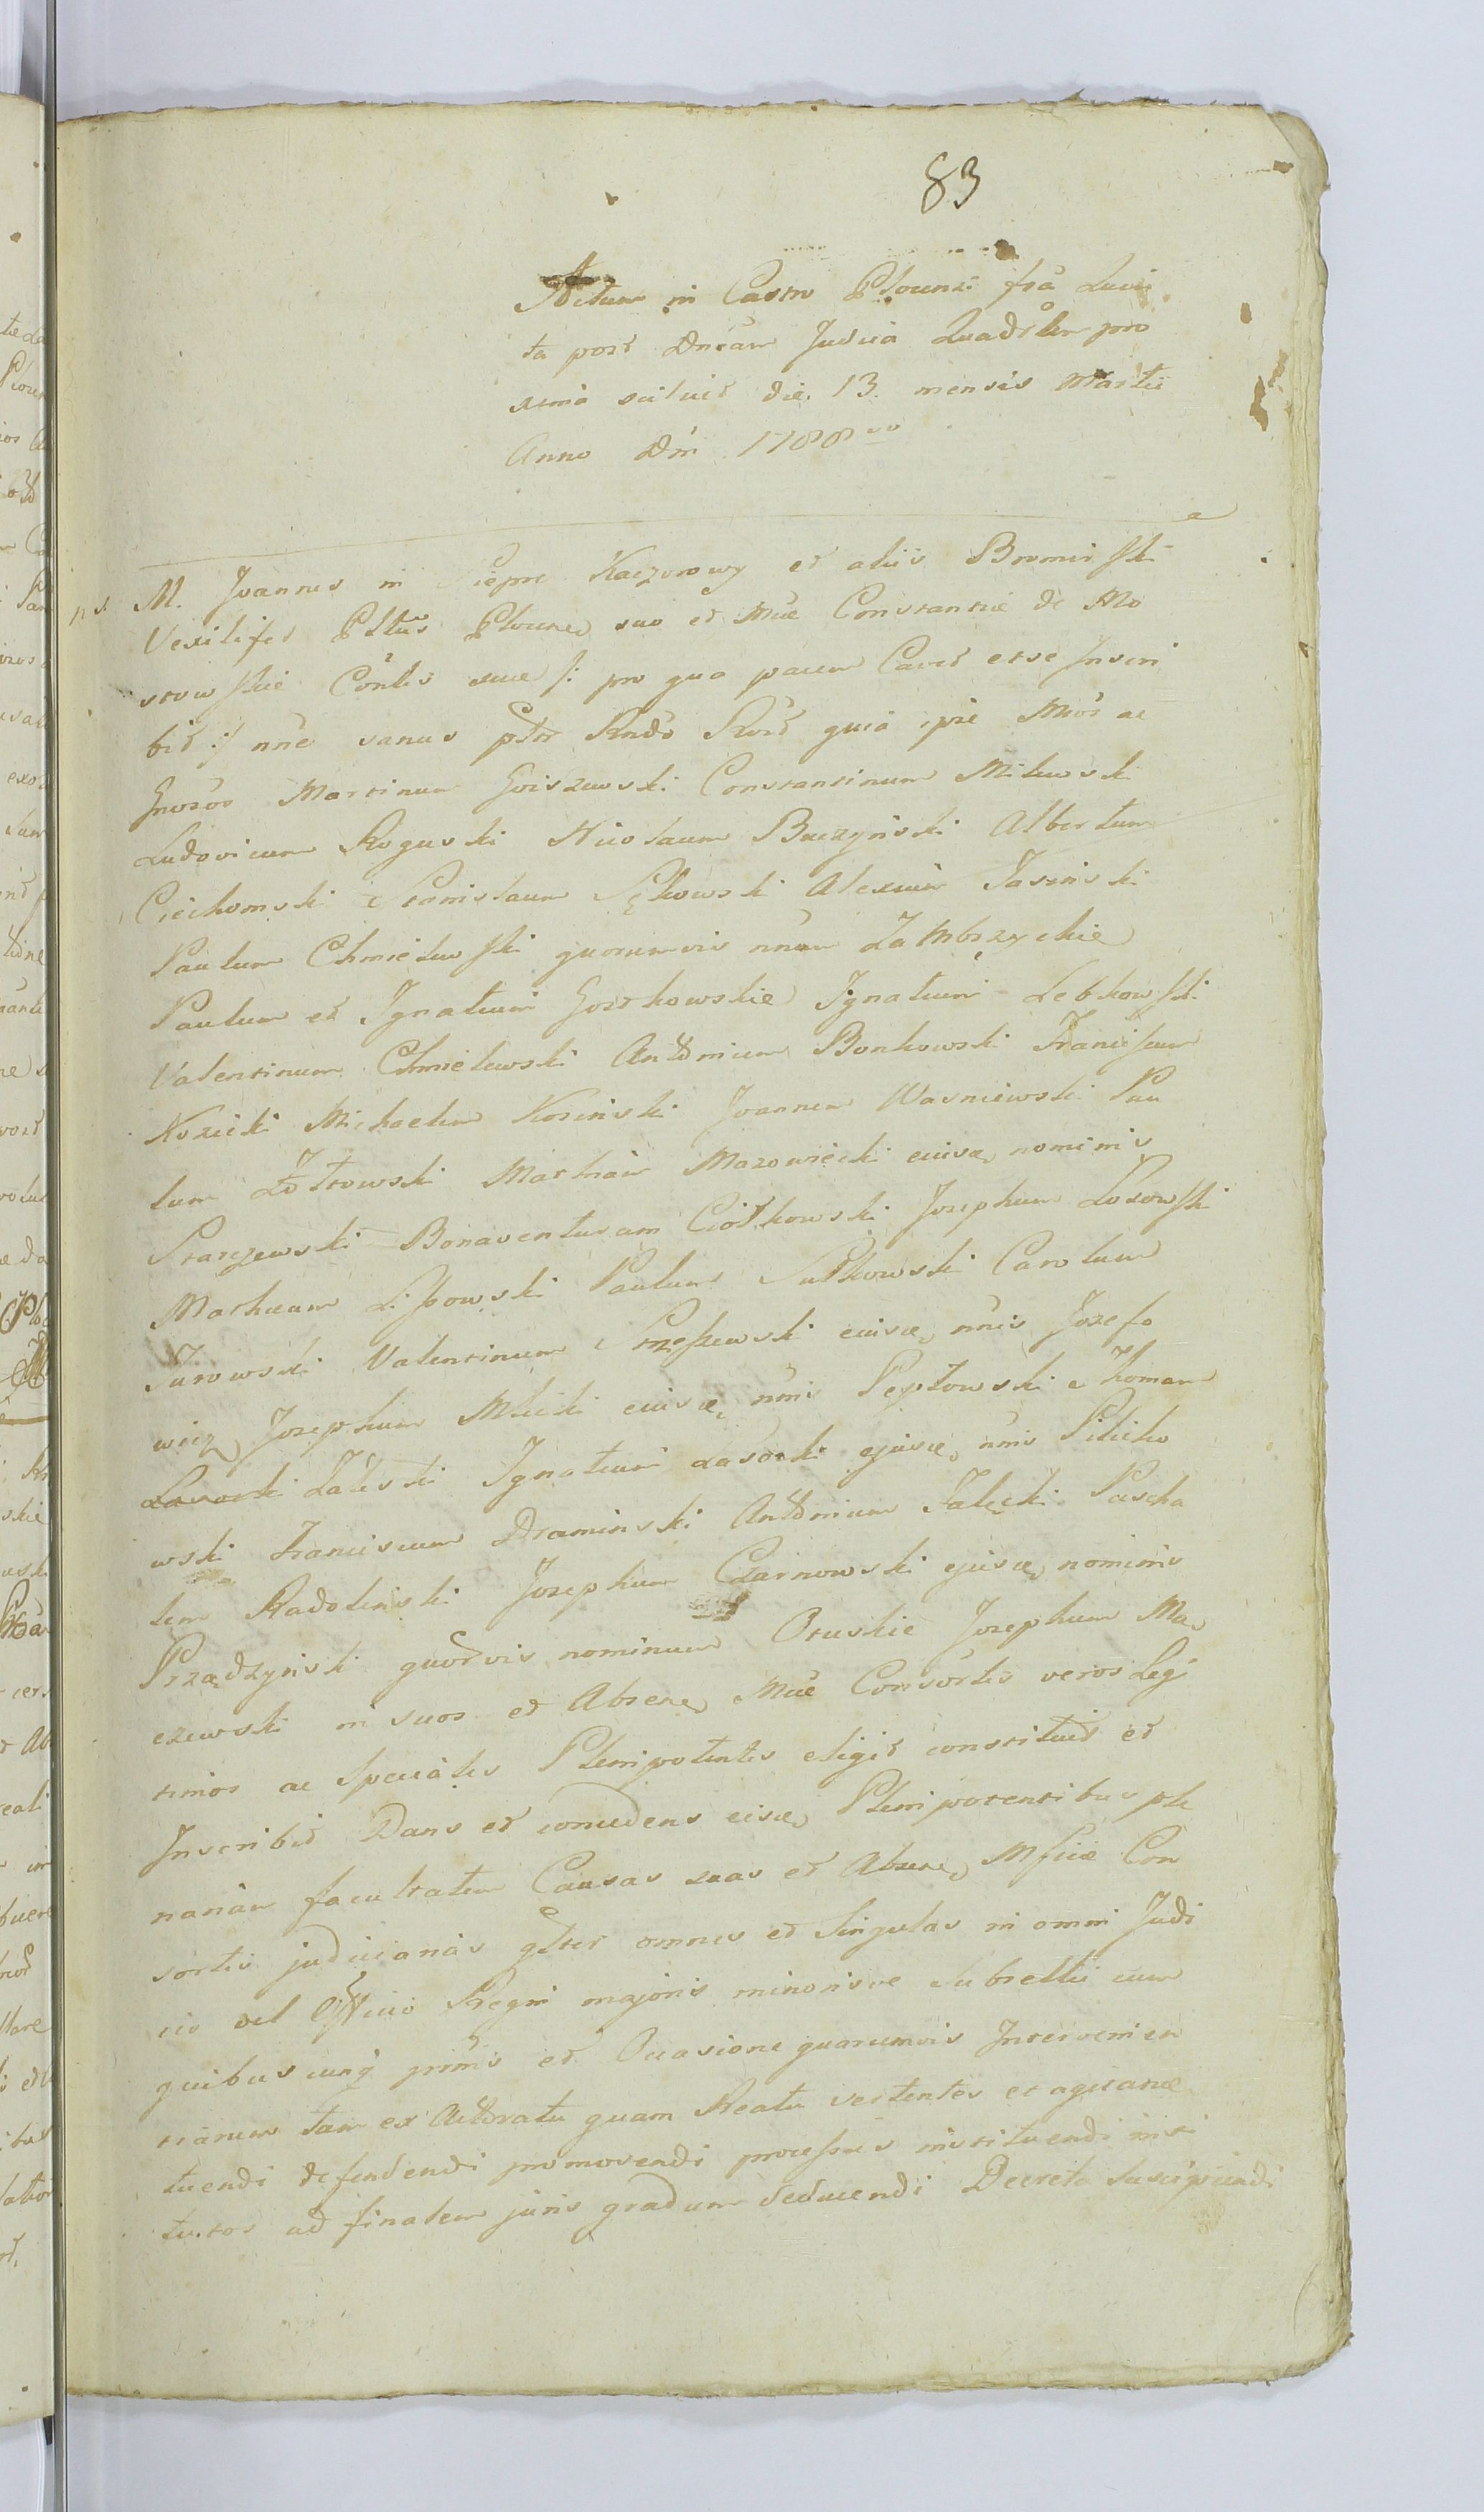 83
Actum in Castro Plocensi fra Quin
ta post Dncam Judica Quadrlem pro
xima scilicet die. 13. mensis Martii
Anno Dni 1788vo
M. Joannes in Siepre Kaczorowy et aliis Bromirski
Vexilifer Pltus Plocen suo et Mae Constantiae de Mo
stowskie Contis suae /: pro qua pacem Cavet etse Inscri
bit :/ nne sanus pttr Rndo Rcst quia ipse Mcos ac
Gnosos Martinum Goiszewski Constantinum Milewski
Ludovicum Roguski Nicolaum Buczynski Albertum
Ciechomski Stanislaum Sękowski Alexium Jasinski
Paulum Chmielewski quorumvis nnum Zambrzyckie
Paulum et Ignatium Gostkowskie Ignatium Lebkowski
Valentinum Chmielewski Antonium Bonkowski Franciscum
Kozicki Michaelem Kosinski Joannem Wasniewski Pau
lum Żółtowski Mathiam Mazowiecki eiusd nominis
Starczewski Bonaventuram Ciółkowski Josephum Łozowski
Matheum Lipowski Paulum Sutkowski Carolum
Turowski Valentinum Strzeszewski eiusd nnis Jozefo
wicz Josephum Mlicki eiusd nnis Peplowski Thomam
Lasocki Zaleski Ignatium Lasocki ejusd nnis Pilicho
wski Franciscum Draminski Antonium Jalęcki Pascha
lem Radolinski Josephum Czarnowski ejusd nominis
Prządzynski quorvis nominum Oruskie Josephum Ma
czewski in suos et Absene Mae Consortis veros Legi
timos ac Speciales Plenipotentes eligit constituit et
Inscribit Dans et concedens eisd Plenipotentibus ple
nariam facultatem Causas suas et Absene Mficae Con
sortis judiciarias gltter omnes et Singulas in omni Judi
cio vel Officio Regni majoris minorisve Subsellii cum
quibuscunq prsnis et Occasione quarumvis Intervenien
tiarum tam ex Actoratu quam Reatu vertentes et agitane
tuendi defendendi promovendi processus instituendi insti
tutos ad finalem juris gradum deducendi Decreta Suscipiendi